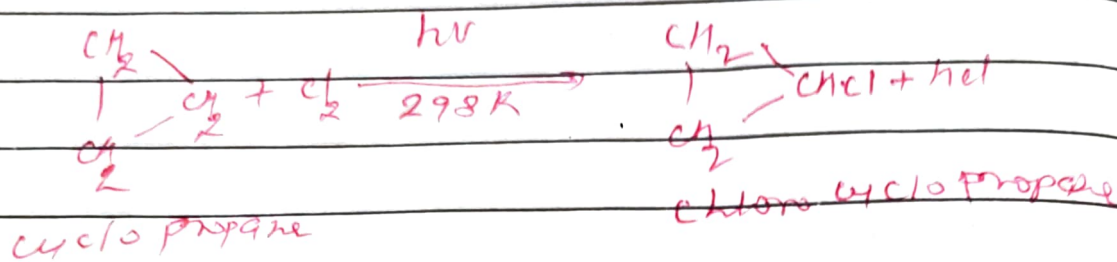 CH2 hν CH2
CH2 + Cl2 298K CHCl + hcl
CH2 CH2
cyclo propane chloro cyclo propane